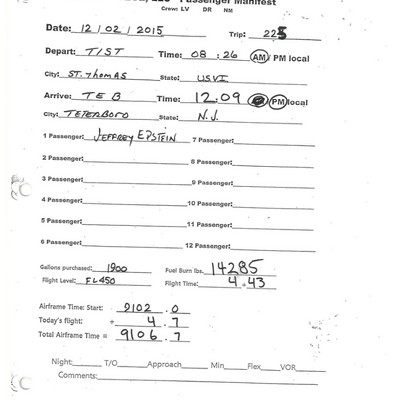 LLC - Passenger Manifest
Crew: LV DR NM
Date: 12/02/2015 Trip: 225
Depart: TIST Time: 08:26 AM/PM local
City: ST. THOMAS State: USVI
Arrive: TEB Time: 12:09 PM local
City: TETERBORO State: N.J.
1 Passenger: JEFFREY EPSTEIN 7 Passenger:
2 Passenger: 8 Passenger:
3 Passenger: 9 Passenger:
4 Passenger: 10 Passenger:
5 Passenger: 11 Passenger:
6 Passenger: 12 Passenger:
Gallons purchased: 1900 Fuel Burn lbs. 14285
Flight Level: FL450 Flight Time: 4.43
Airframe Time: Start: 9102.0
Today's flight: + 4.7
Total Airframe Time = 9106.7
Night: T/O Approach Min Flex VOR
Comments: